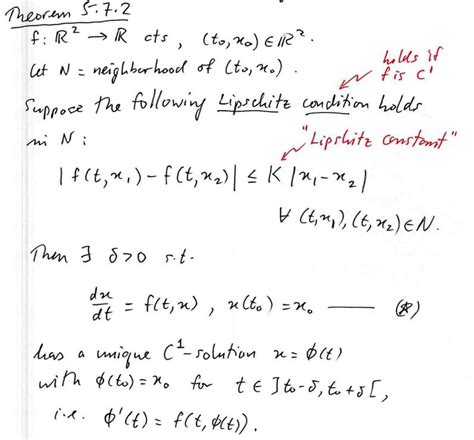 Theorem 5.7.2
f: ℝ² → ℝ cts, (t₀, x₀) ∈ ℝ².
Let N = neighborhood of (t₀, x₀).
holds if
f is C¹
Suppose the following Lipschitz condition holds
in N:
"Lipshitz constant"
|f(t, x₁) - f(t, x₂)| ≤ K |x₁ - x₂|
∀ (t, x₁), (t, x₂) ∈ N.
Then ∃ δ>0 s.t.
dx/dt = f(t, x), x(t₀) = x₀ —— (*)
has a unique C¹-solution x = ϕ(t)
with ϕ(t₀) = x₀ for t ∈ ]t₀-δ, t₀+δ[,
i.e. ϕ'(t) = f(t, ϕ(t)).